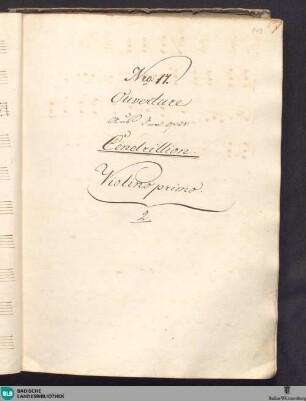 Nro. 17.
Ouverture
aus der oper
Cendrillion.
Violino primo.
2
BLB BADISCHE
LANDESBIBLIOTHEK
Baden-Württemberg